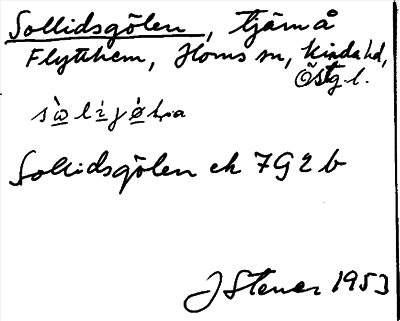 Sollidsgölen, tjärn å
Flytthem, Horns sn, Kinda hd,
Östg. l.
Sollidsgölen ek 7G2b
J Stener 1953